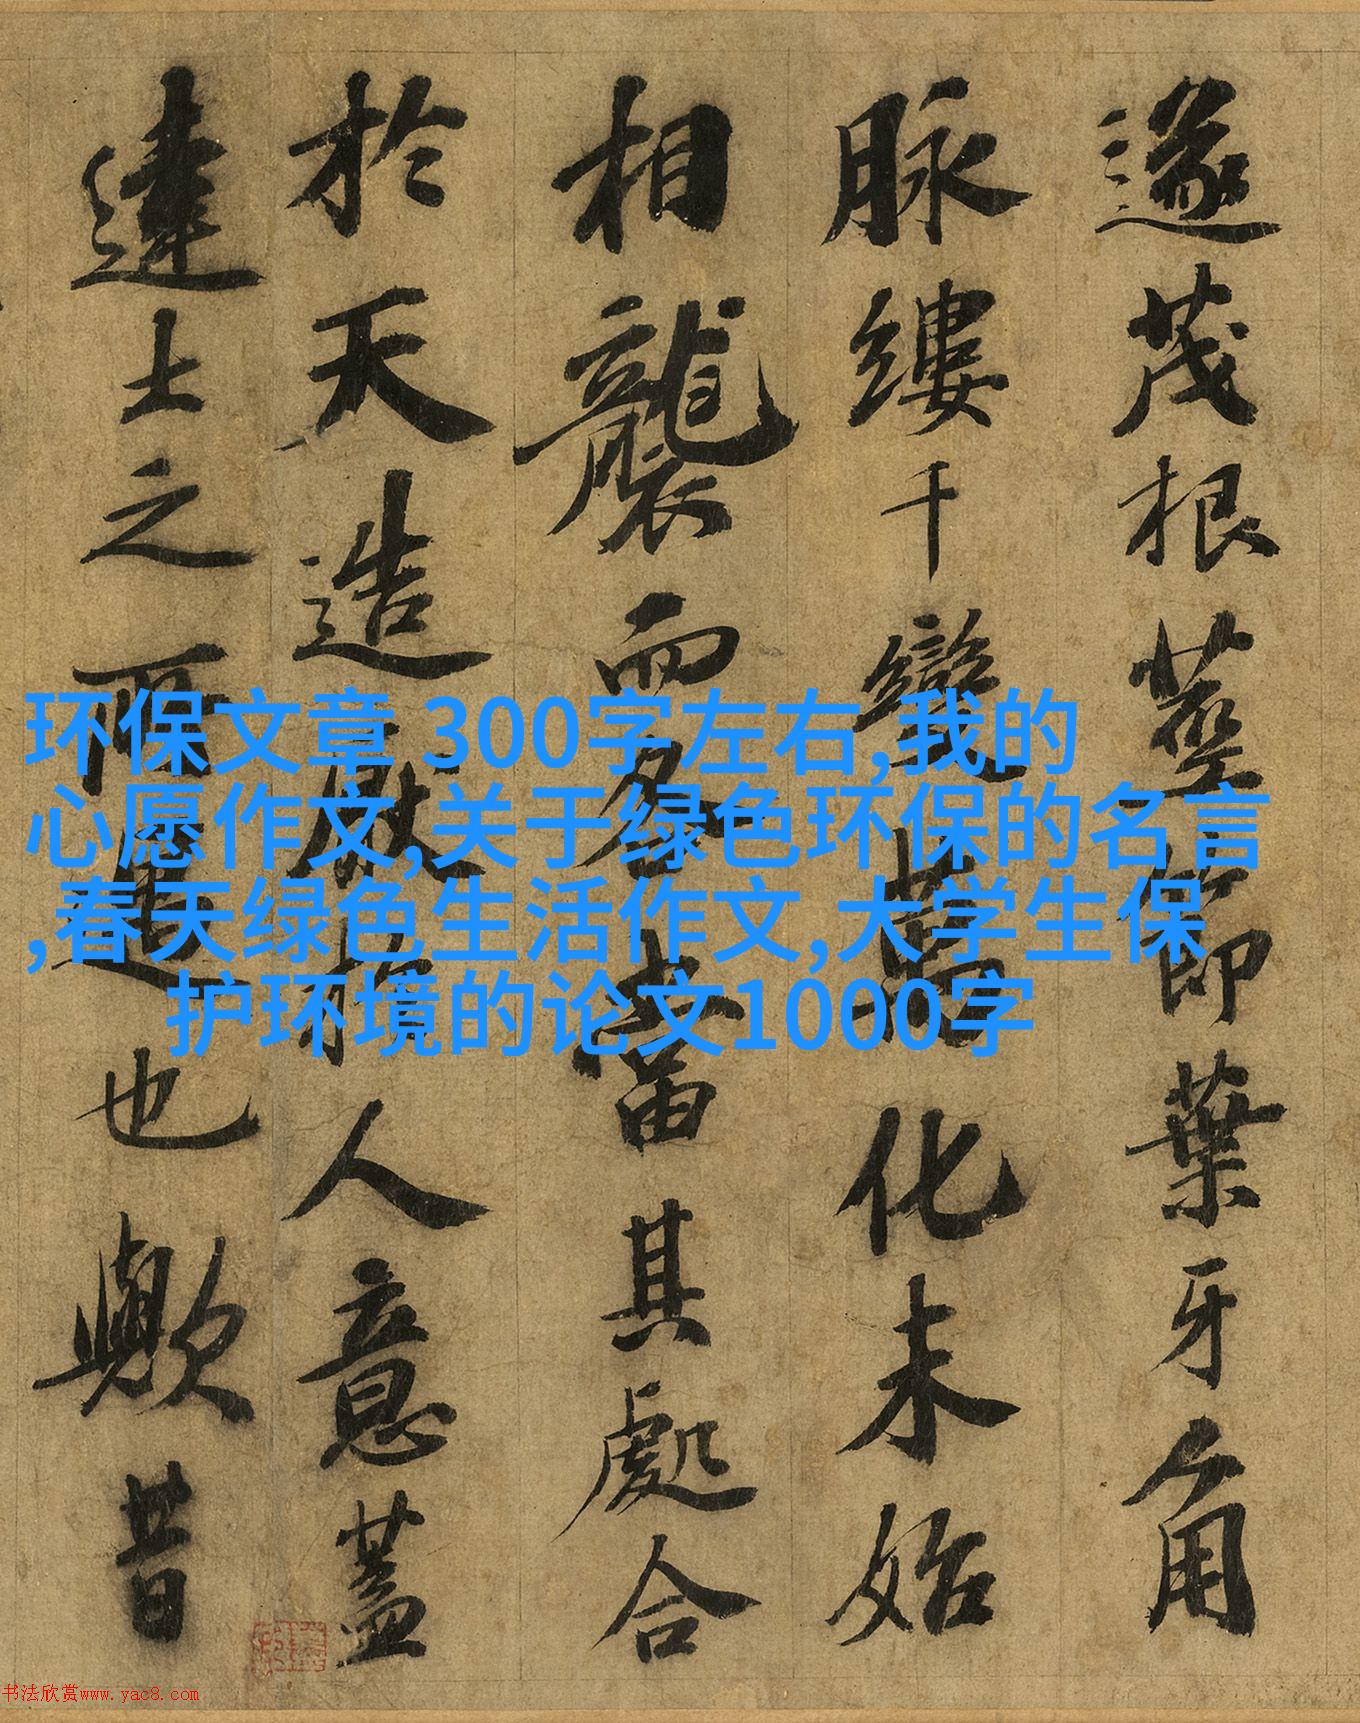 遂茂根莖節葉牙角
脉縷千變萬化未始
相襲而各當其處合
於天造厭於人意蓋
達士之所也歟昔
环保文章 300字左右,我的
心愿作文,关于绿色环保的名言
,春天绿色生活作文,大学生保
护环境的论文1000字
书法欣赏www.yac8.com